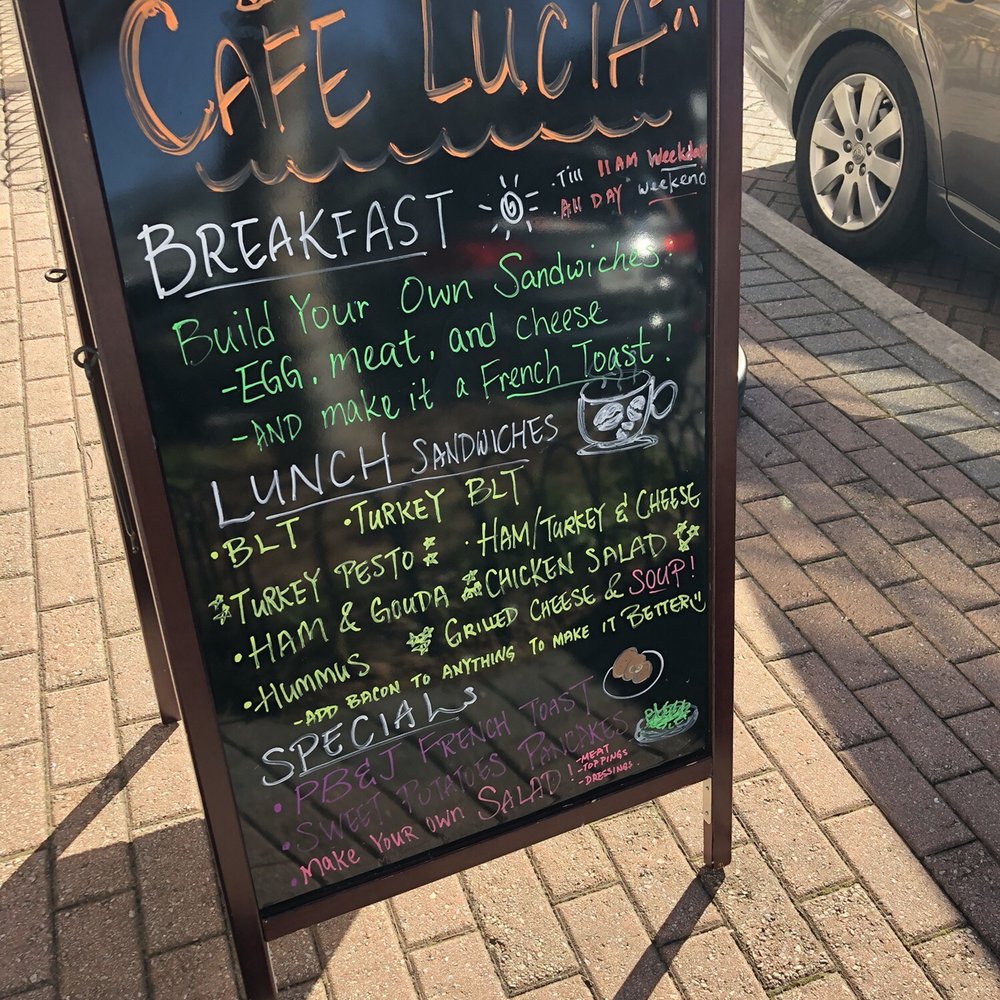 CAFE LUCIA
BREAKFAST
• Till 11AM Weekday
• All DAY weekend
Build Your Own Sandwiches!
-EGG, meat, and cheese
-AND make it a French Toast!
LUNCH SANDWICHES
• BLT • TURKEY BLT
TURKEY PESTO • HAM/TURKEY & CHEESE
• HAM & GOUDA CHICKEN SALAD
• HUMMUS GRILLED CHEESE & SOUP!
-ADD BACON TO ANYTHING TO MAKE IT BETTER
SPECIALS
• PB&J FRENCH TOAST
• SWEET POTATOES PANCAKES
• MAKE YOUR OWN SALAD!
-MEAT
-TOPPINGS
-DRESSINGS